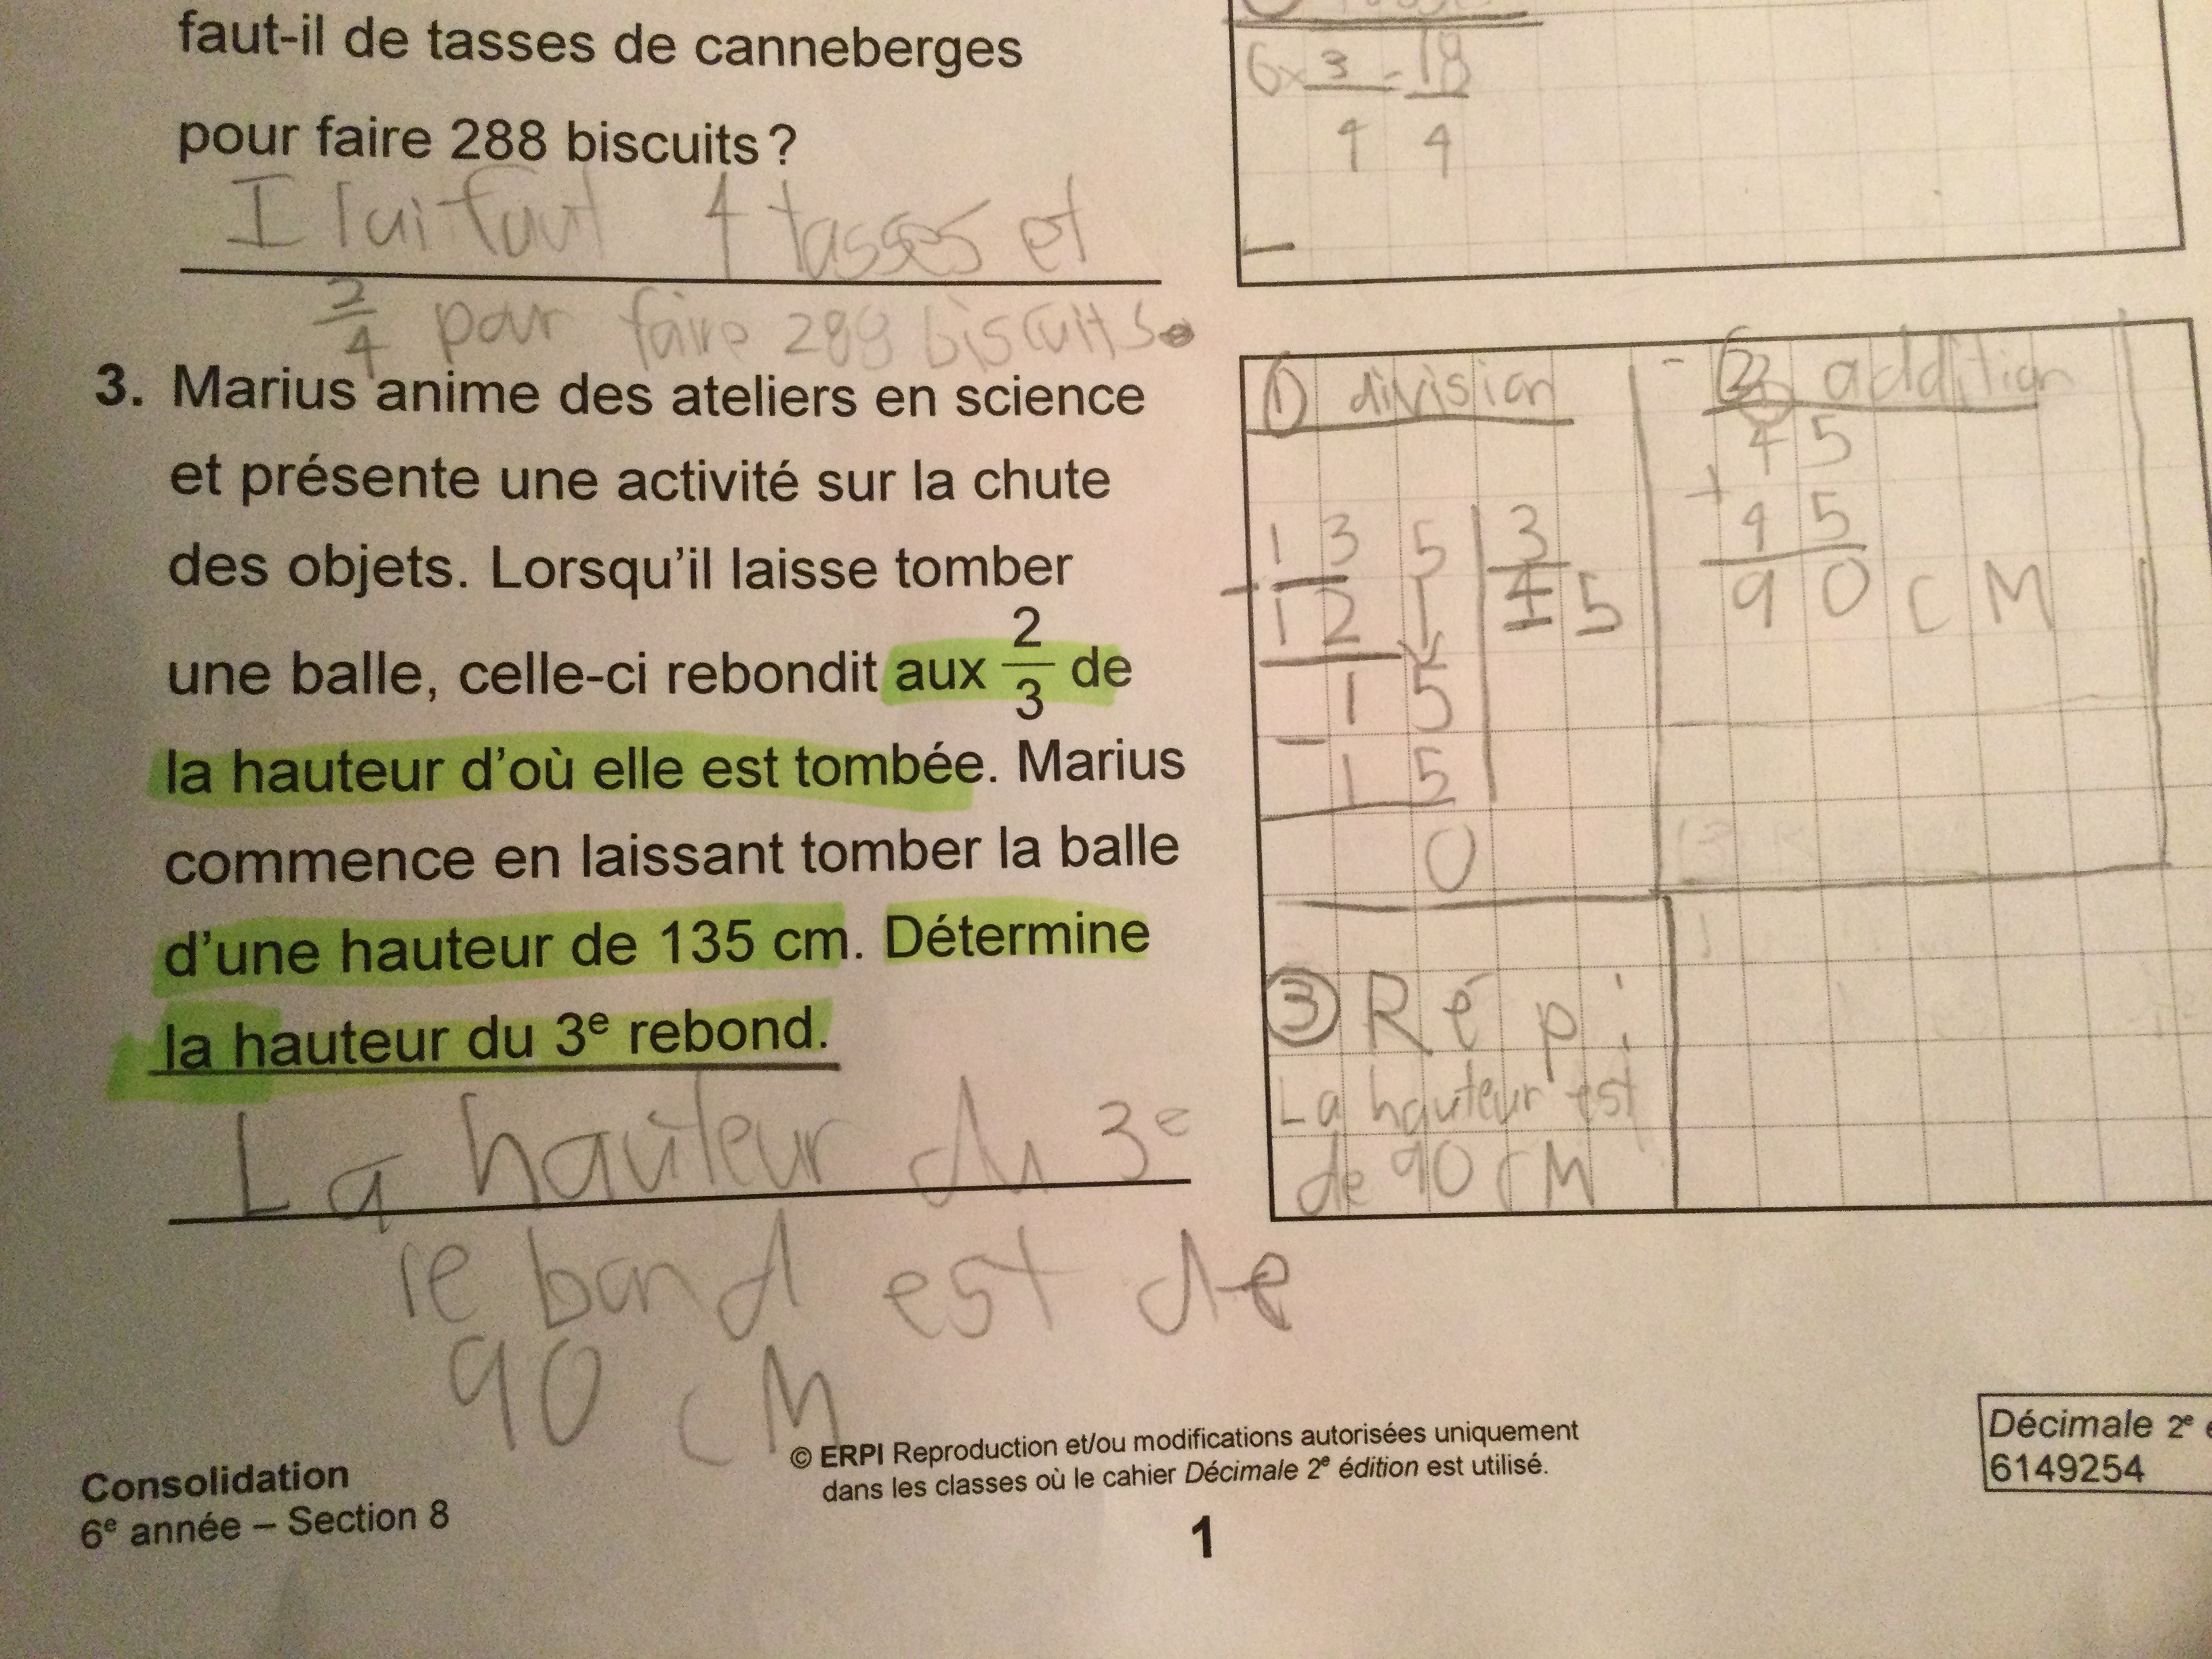 faut-il de tasses de canneberges
pour faire 288 biscuits ?
I lui faut 4 tasses et
2/4 pour faire 288 biscuits.
6 x 3/4 = 18/4
3. Marius anime des ateliers en science
et présente une activité sur la chute
des objets. Lorsqu'il laisse tomber
une balle, celle-ci rebondit aux 2/3 de
la hauteur d'où elle est tombée. Marius
commence en laissant tomber la balle
d'une hauteur de 135 cm. Détermine
la hauteur du 3e rebond.
La hauteur du 3e
rebond est de
90 cM
① division
135 | 3
- 12 | 45
15
- 15
0
② addition
45
+ 45
90 cM
③ Rép:
La hauteur est
de 90 cM
Consolidation
6e année – Section 8
© ERPI Reproduction et/ou modifications autorisées uniquement
dans les classes où le cahier Décimale 2e édition est utilisé.
1
Décimale 2e
6149254